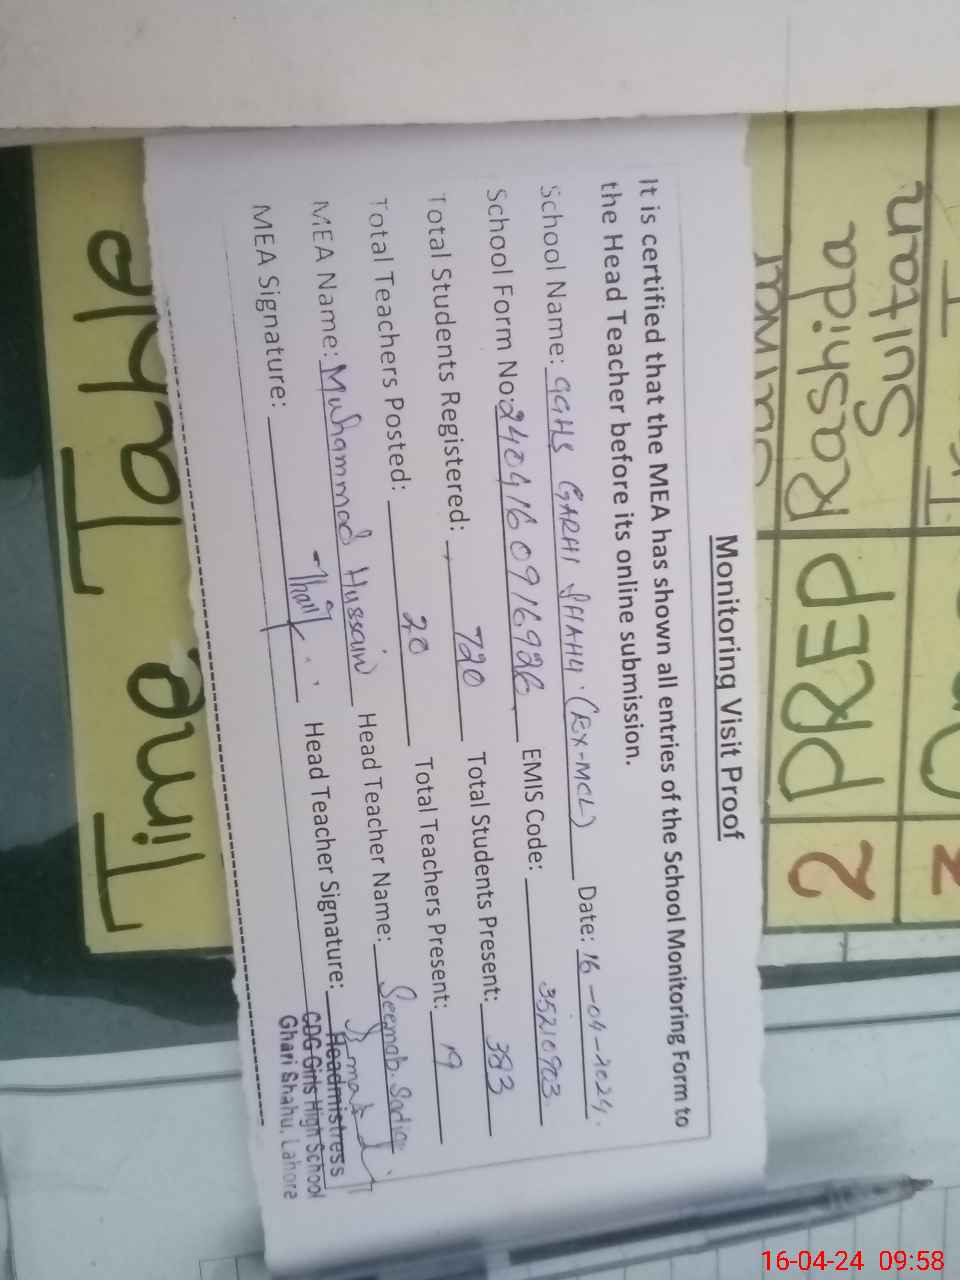 Monitoring Visit Proof
It is certified that the MEA has shown all entries of the School Monitoring Form to
the Head Teacher before its online submission.
School Name: GGHS GARHI SHAHU (EX-MCL) Date: 16-04-2024.
School Form No: 240416091692 EMIS Code: 35210903
Total Students Registered: 720 Total Students Present: 383
Total Teachers Posted: 20 Total Teachers Present: 19
MEA Name: Muhammad Hussain Head Teacher Name: Seemab Sadiq
MEA Signature: Head Teacher Signature:
Headmistress
CDG Girls High School
Ghari Shahu, Lahore
Time Table
2 PREP Rashida
Sultan
3
16-04-24 09:58